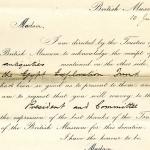 British Museum
10 Jan
Madam,
I am directed by the Trustees of
British Museum to acknowledge the receipt of
antiquities mentioned on the other side
the Egypt Exploration Fund
had been so good as to present to them: and
am to request that you will convey to the
President and Committee
the expression of the best thanks of the Trustees
of the British Museum for this donation.
I have the honour to be,
Madam,